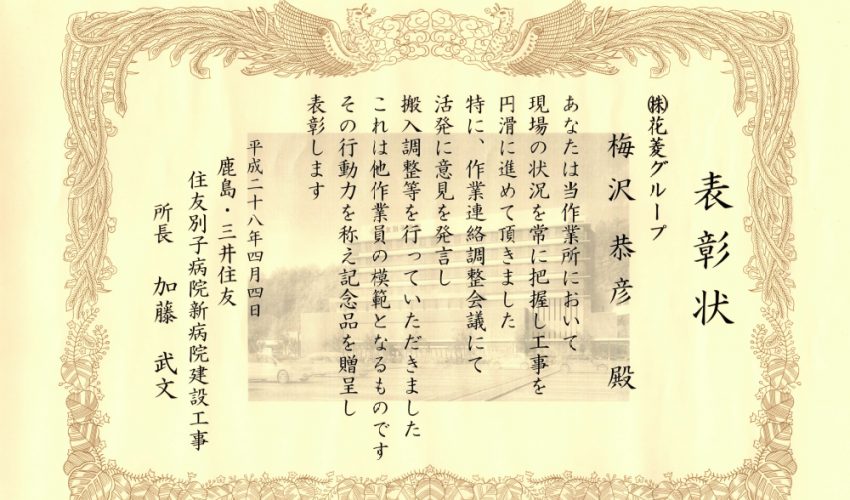 表彰状
㈱花菱グループ
梅沢恭彦 殿
あなたは当作業所において
現場の状況を常に把握し工事を
円滑に進めて頂きました
特に、作業連絡調整会議にて
活発に意見を発言し
搬入調整等を行っていただきました
これは他作業員の模範となるものです
その行動力を称え記念品を贈呈し
表彰します
平成二十八年四月四日
鹿島・三井住友
住友別子病院新病院建設工事
所長 加藤 武文